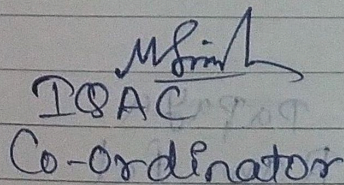 IQAC
Co-ordinator